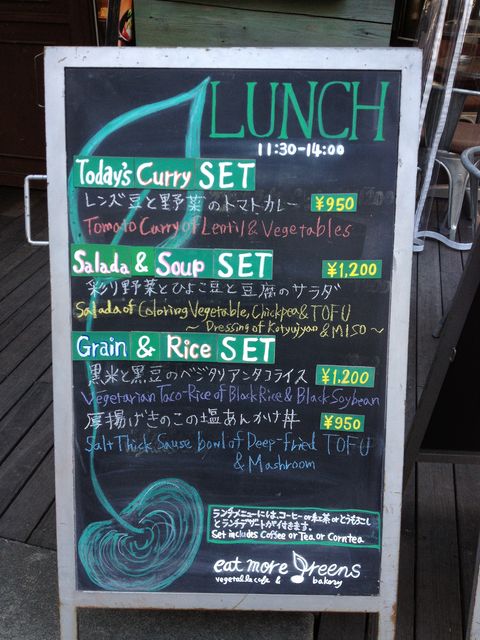 LUNCH
11:30-14:00
Today's Curry SET
レンズ豆と野菜のトマトカレー ¥950
Tomato Curry of Lentil & Vegetables
Salada & Soup SET ¥1,200
彩り野菜とひよこ豆と豆腐のサラダ
Salada of Coloring Vegetable, Chickpea & TOFU
~ Dressing of Kotyujyan & MISO ~
Grain & Rice SET
黒米と黒豆のベジタリアンタコライス ¥1,200
Vegetarian Taco-Rice of Black Rice & Black Soybean
厚揚げきのこの塩あんかけ丼 ¥950
Salt Thick Sause bowl of Deep-fried TOFU
& Mashroom
ランチメニューには、コーヒー or 紅茶 or とうもろこし
とランチデザートが付きます。
Set includes Coffee or Tea or Corntea
eat more greens
vegetable cafe & bakery